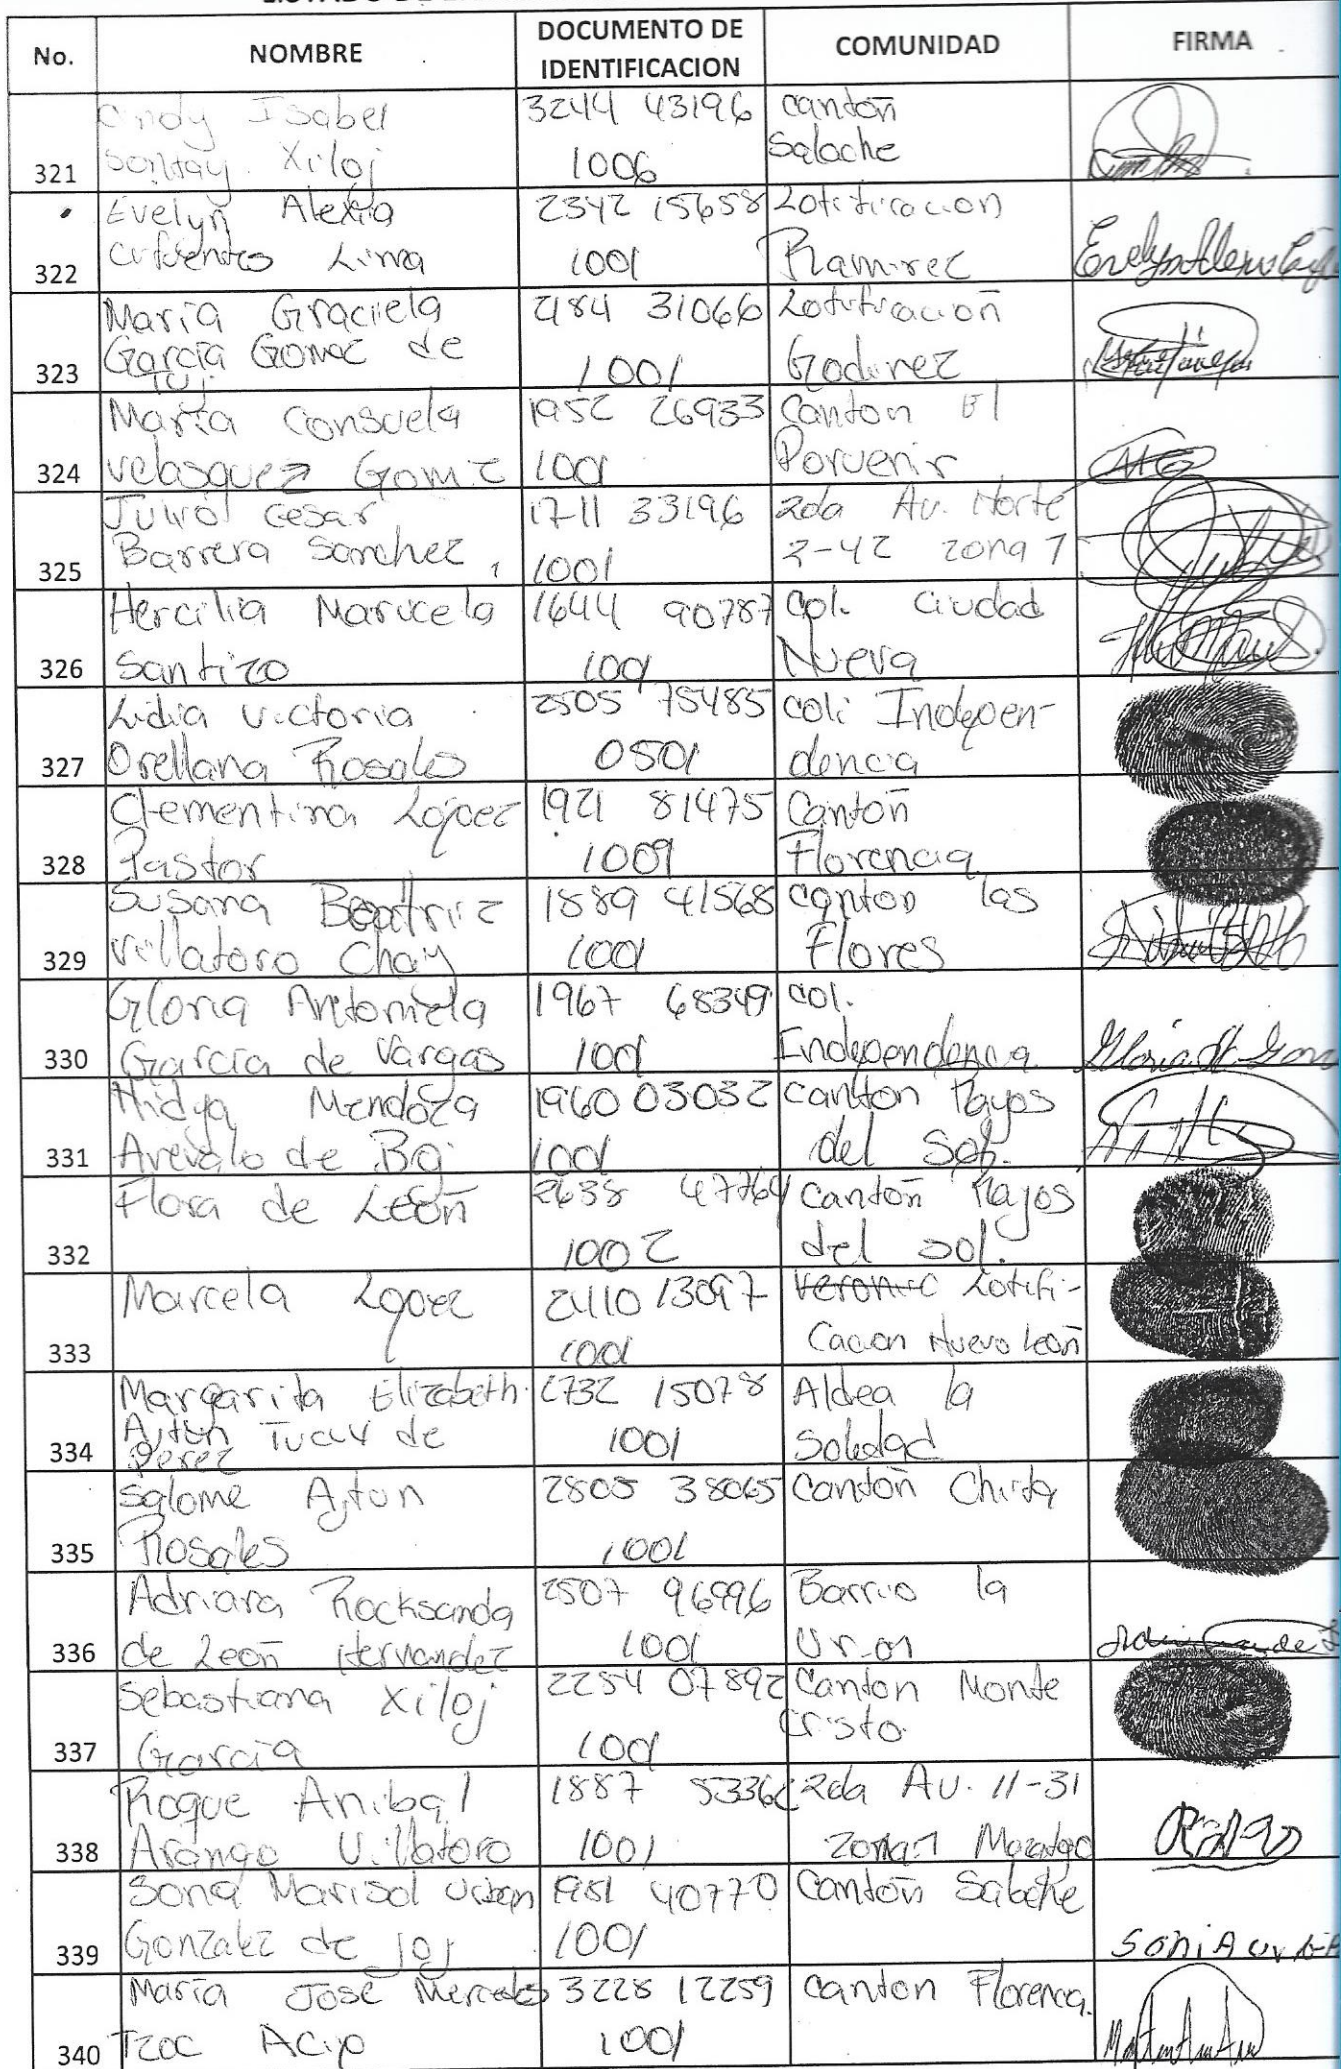 No. NOMBRE DOCUMENTO DE IDENTIFICACION COMUNIDAD FIRMA
321 Cindy Isabel Xiloj 3244 43196 1006 cantón Salache
322 Evelyn Alexia Cifuentes Lima 2342 15658 1001 Lotificacion Ramirez
323 María Graciela García Gomez de 31066 1001 Lotificación Godinez
324 María Consuela Velasquez 1952 26933 1001 Canton El Porvenir
325 Cesar Barrera Sanchez 1711 33196 1001 2da Av. Norte 2-42 zona 1
326 Hercilia Maricela Santizo 1644 90787 1001 Col. Ciudad Nueva
327 Lidia Victoria Orellana Rosales 2505 75485 0501 col: Indepen-
dencia
328 Clementina López Pastor 1921 81475 1009 Cantón Florencia
329 Susana Beatriz Villatoro Chay 1889 41568 1001 canton las Flores
330 Gloria Antonieta García de Vargas 1967 68349 1001 col. Independencia
331 Mendoza Arevalo de 1960 03032 1001 canton Rayos del Sol.
332 Flora de León 2638 47764 1002 Cantón Rayos del sol.
333 Marcela Lopez 2410 13097 1001 Lotifi-
cacion Nuevo León
334 Margarita Elizabeth de Perez 15078 1001 Aldea la Soledad
335 Salome Ajtun Rosales 2805 38065 1001 Cantón
336 Adriana Rocksanda de León Hernandez 2507 96996 1001 Barrio la Union
337 Sebastiana Xiloj García 2254 07892 1001 Canton Monte Cristo
338 Roque Anibal Arango Villatoro 1887 1001 2da Av. 11-31 zona 1
339 Marisol Gonzalez de 1951 40770 1001 Cantón Salache SoniA
340 María José Mercedes Tzoc 3228 12259 1001 Canton Florencia.